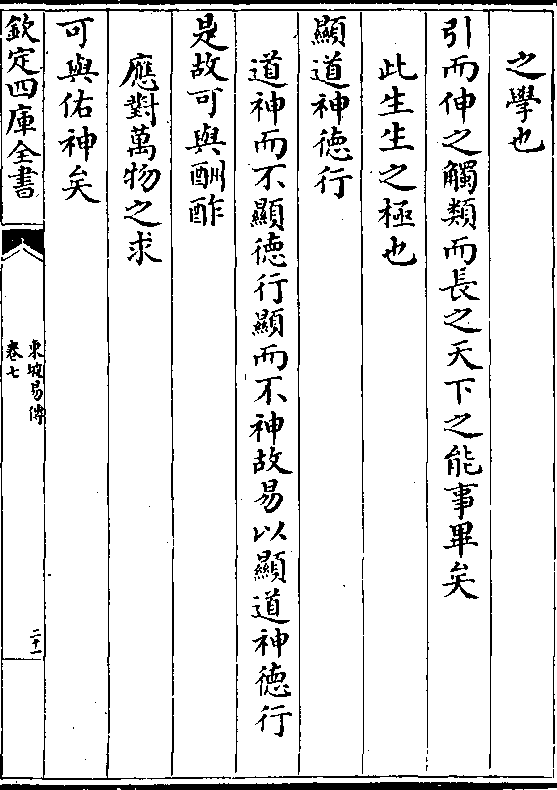 之學也
引而伸之觸類而長之天下之能事畢矣
此生生之極也
顯道神德行
道神而不顯德行顯而不神故易以顯道神德行
是故可與酬酢
應對萬物之求
可與佑神矣
欽定四庫全書
東坡易傳
卷七
二十一